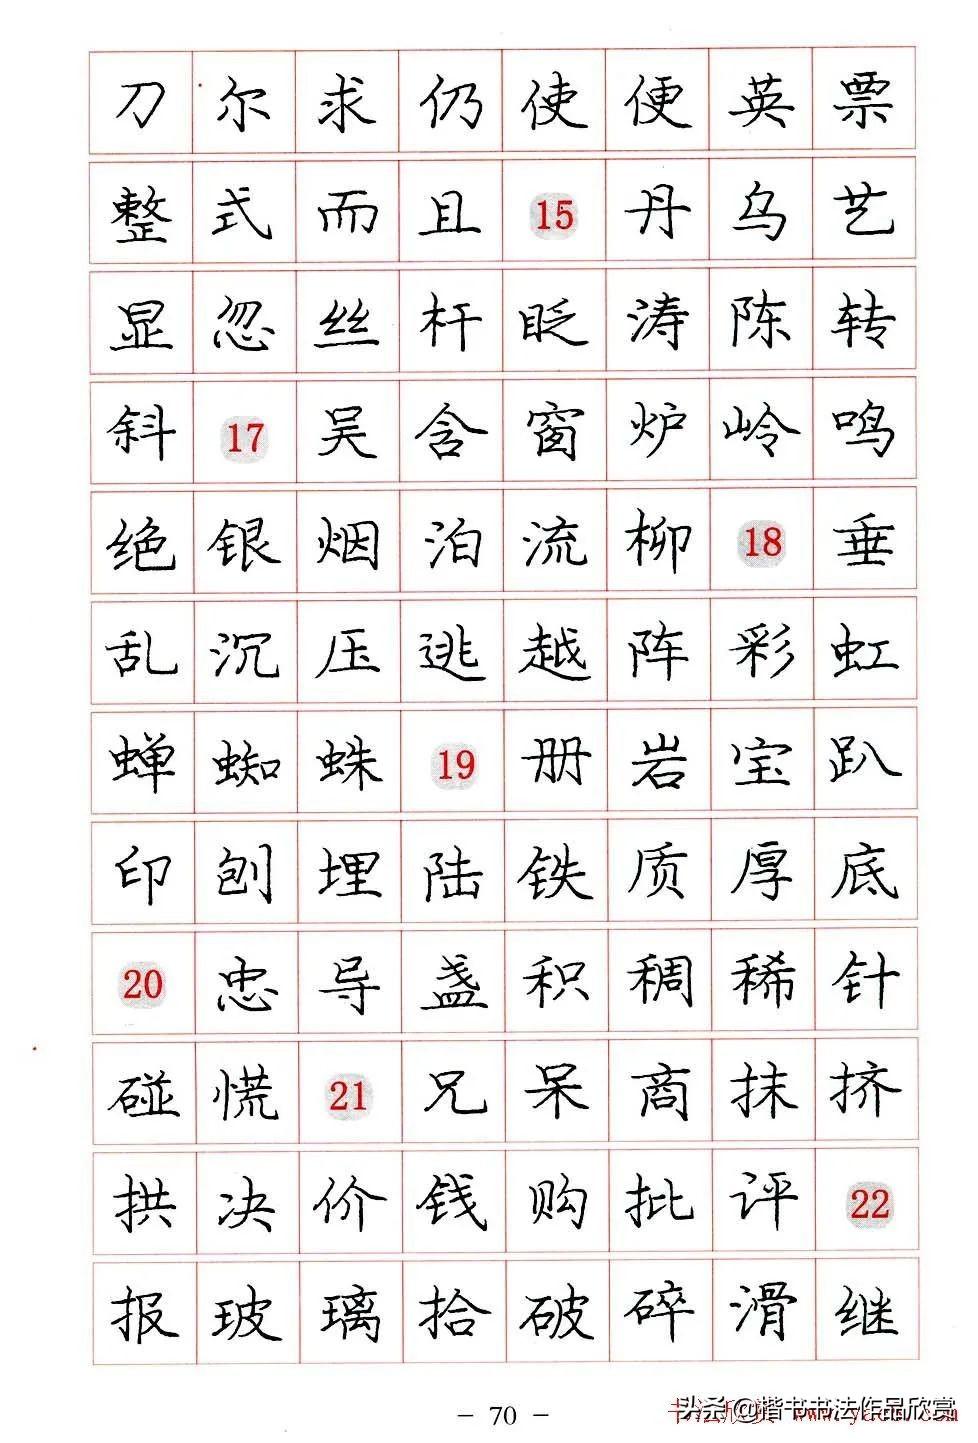 刀 尔 求 仍 使 便 英 票
整 式 而 且 15 丹 乌 艺
显 忽 丝 杆 眨 涛 陈 转
斜 17 吴 含 窗 炉 岭 鸣
绝 银 烟 泊 流 柳 18 垂
乱 沉 压 逃 越 阵 彩 虹
蝉 蜘 蛛 19 册 岩 宝 趴
印 刨 埋 陆 铁 质 厚 底
20 忠 导 盏 积 稠 稀 针
碰 慌 21 兄 呆 商 抹 挤
拱 决 价 钱 购 批 评 22
报 玻 璃 拾 破 碎 滑 继
- 70 -
头条@楷书书法作品欣赏